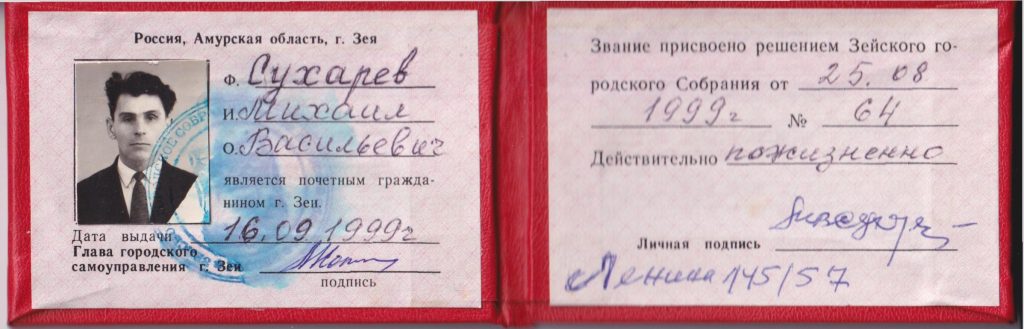 Россия, Амурская область, г. Зея
Ф. Сухарев
И. Михаил
О. Васильевич
является почетным гражда-
нином г. Зеи.
Дата выдачи 16.09.1999г
Глава городского
самоуправления г. Зеи
подпись
Звание присвоено решением Зейского го-
родского Собрания от 25.08
1999г № 64
Действительно пожизненно
Личная подпись
Ленина 145/57